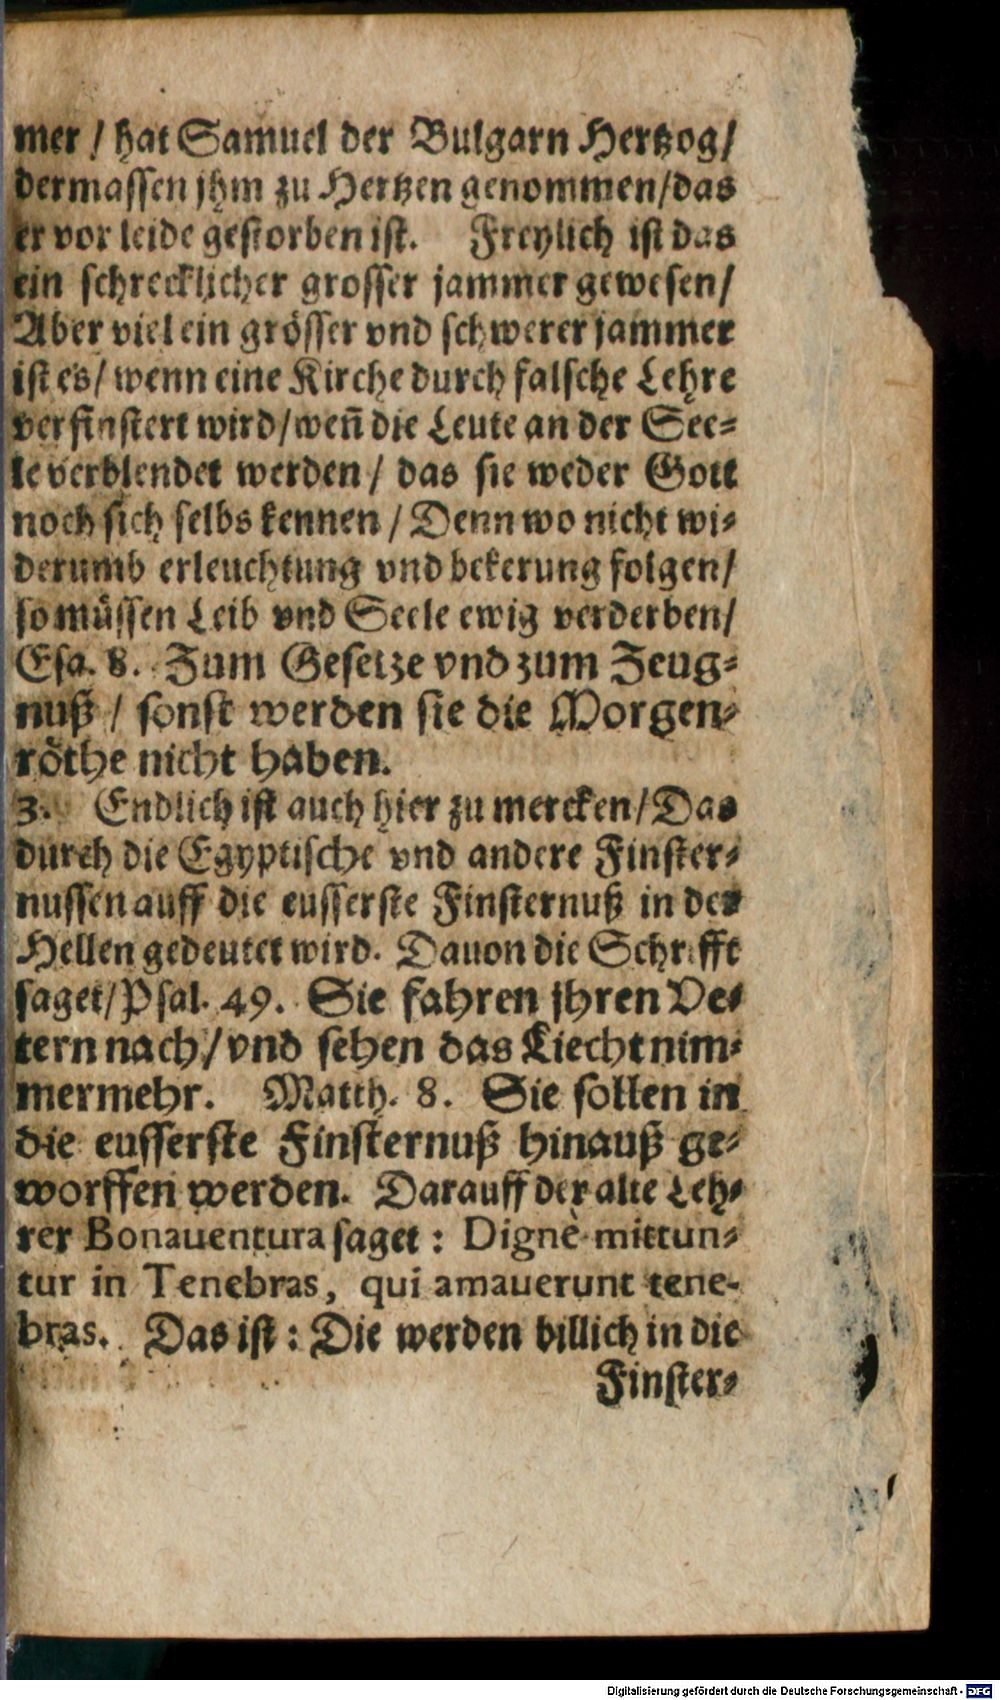 mer / hat Samuel der Bulgarn Hertzog/
dermassen jhm zu Hertzen genommen/das
er vor leide gestorben ist. Freylich ist das
ein schrecklicher grosser jammer gewesen/
Aber viel ein grösser vnd schwerer jammer
ist es/ wenn eine Kirche durch falsche Lehre
verfinstert wird/weñ die Leute an der See-
le verblendet werden / das sie weder Gott
noch sich selbs kennen / Denn wo nicht wi-
derumb erleuchtung vnd bekerung folgen/
so müssen Leib vnd Seele ewig verderben/
Esa. 8. Zum Gesetze vnd zum Zeug-
nuß / sonst werden sie die Morgen-
röthe nicht haben.
3. Endlich ist auch hier zu mercken/Das
durch die Egyptische vnd andere Finster-
nussen auff die eusserste Finsternuß in der
Hellen gedeutet wird. Dauon die Schrifft
saget/Psal. 49. Sie fahren jhren Ve-
tern nach/vnd sehen das Liecht nim-
mermehr. Matth. 8. Sie sollen in
die eusserste Finsternuß hinauß ge-
worffen werden. Darauff der alte Leh-
rer Bonauentura saget : Dignè mittun-
tur in Tenebras, qui amauerunt tene-
bras. Das ist : Die werden billich in die
Finster-
Digitalisierung gefördert durch die Deutsche Forschungsgemeinschaft - DFG